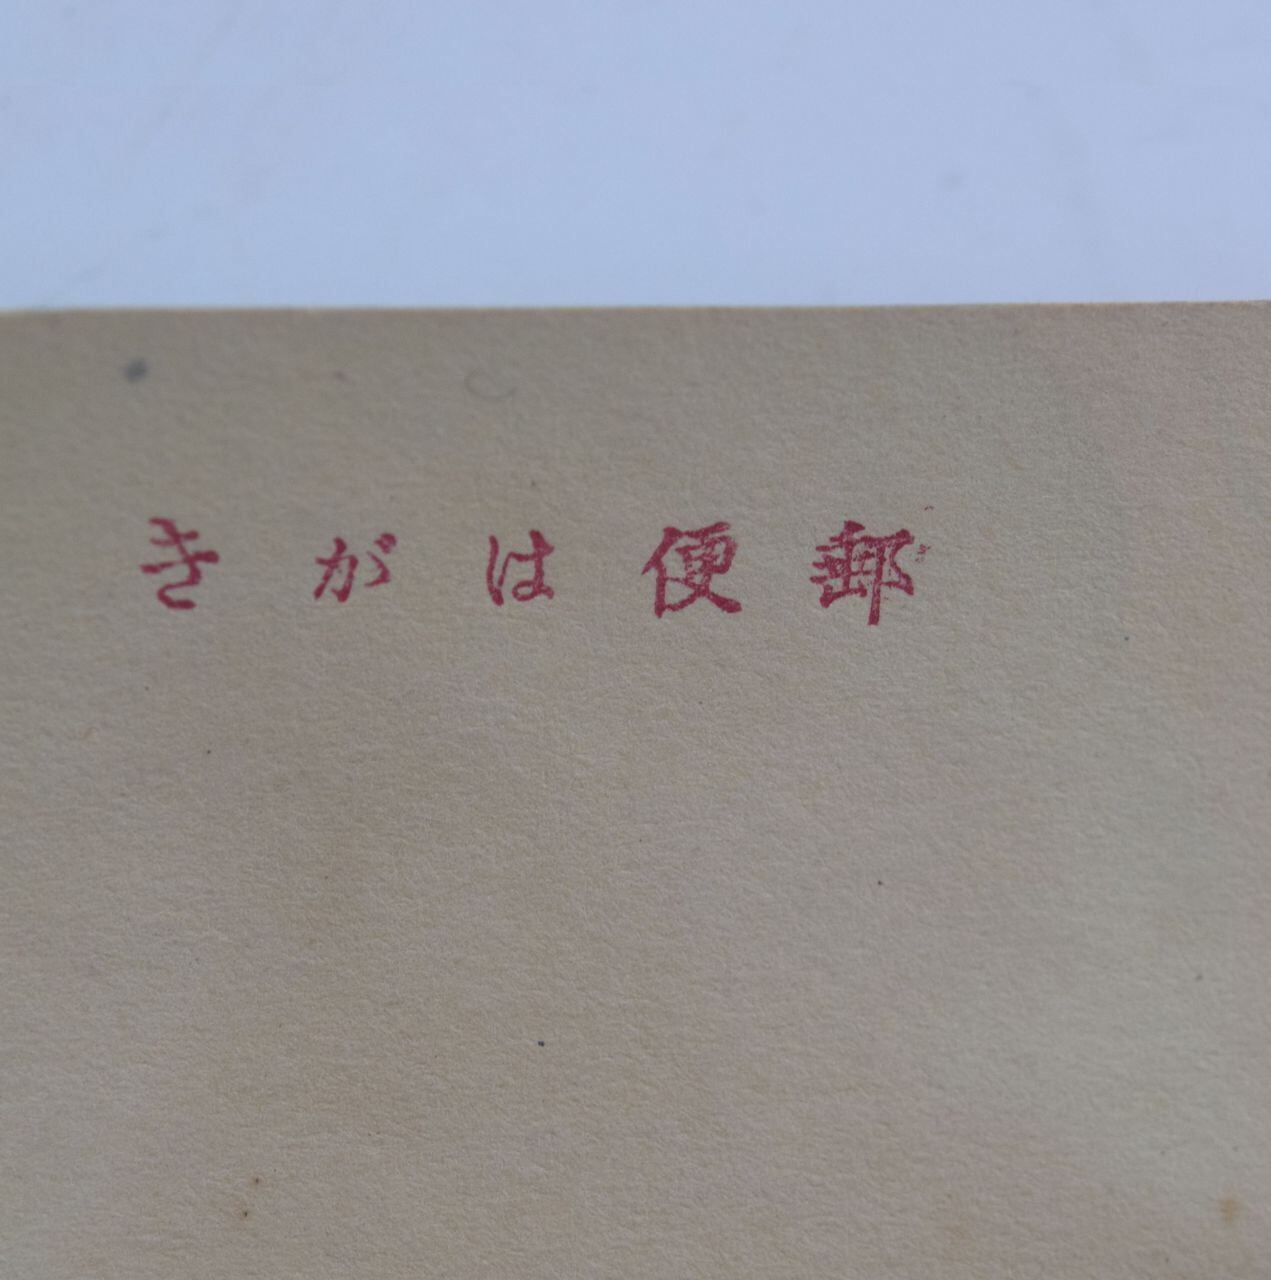 郵便はがき